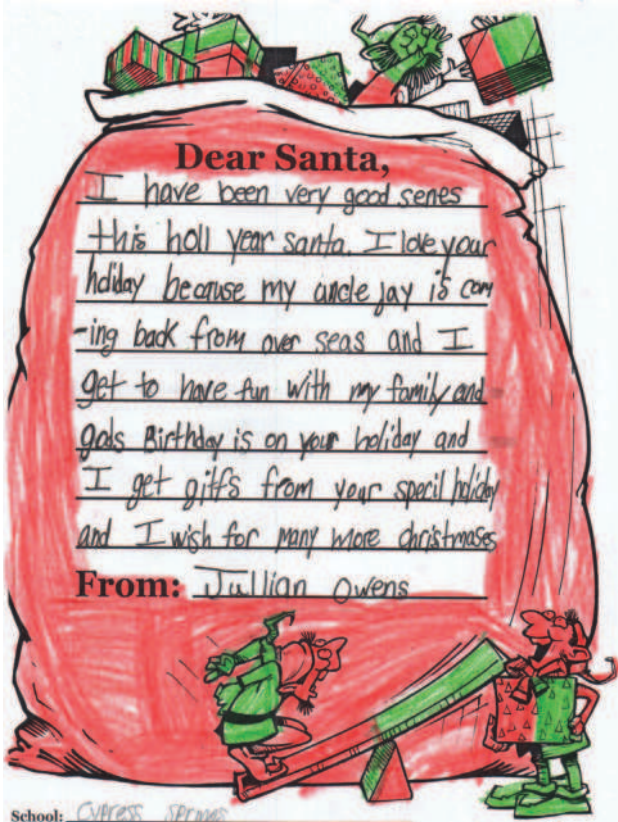 Dear Santa,
I have been very good senes
this holl year santa. I love your
holiday because my uncle jay is com
-ing back from over seas and I
get to have fun with my family and
gods Birthday is on your holiday and
I get gitfs from your specil holiday
and I wish for many more christmases
From: Jullian Owens
School: Cypress Springs